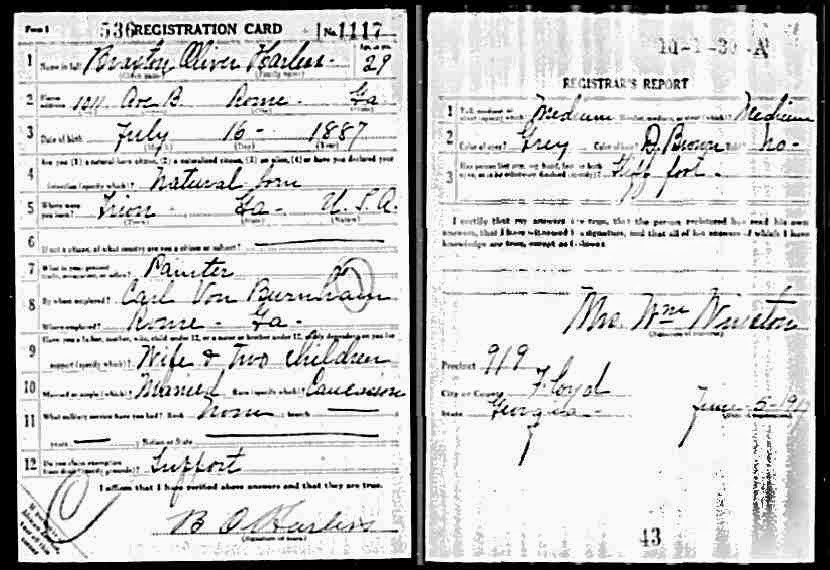 Form 1 536 REGISTRATION CARD No. 1117
1 Name in full Braxton Oliver Harlers Age, in yrs. 29
(Given name) (Family name)
2 Home address 1011 Ave B. Rome Ga
3 Date of birth July 16 - 1887
(Month) (Day) (Year)
Are you (1) a natural-born citizen, (2) a naturalized citizen, (3) an alien, (4) or have you declared your
4 intention (specify which)? Natural born
5 Where were you born? Ga - U.S.A.
(Town) (State) (Nation)
6 If not a citizen, of what country are you a citizen or subject?
7 What is your present trade, occupation, or office? Painter
8 By whom employed? Carl Von Burnham
Where employed? Rome - Ga -
Have you a father, mother, wife, child under 12, or a sister or brother under 12, solely dependent on you for
9 support (specify which)? Wife & Two children
10 Married or single (which)? Married Race (specify which)? Caucasion
11 What military service have you had? Rank None ; branch
years ; Nation or State
12 Do you claim exemption from draft (specify grounds)? Support
I affirm that I have verified above answers and that they are true.
B O Harlers
(Signature or mark)
10-1-30-A
REGISTRAR'S REPORT
1 Tall, medium, or short (specify which)? Medium Slender, medium, or stout (which)? Medium
2 Color of eyes? Grey Color of hair? D. Brown Bald? No -
3 Has person lost arm, leg, hand, foot, or both eyes, or is he otherwise disabled (specify)? foot -
I certify that my answers are true, that the person registered has read his own
answers, that I have witnessed his signature, and that all of his answers of which I have
knowledge are true, except as follows:
Wm Winston
(Signature of registrar)
Precinct 919
City or County Floyd
State Georgia - June - 5 - 1917
43